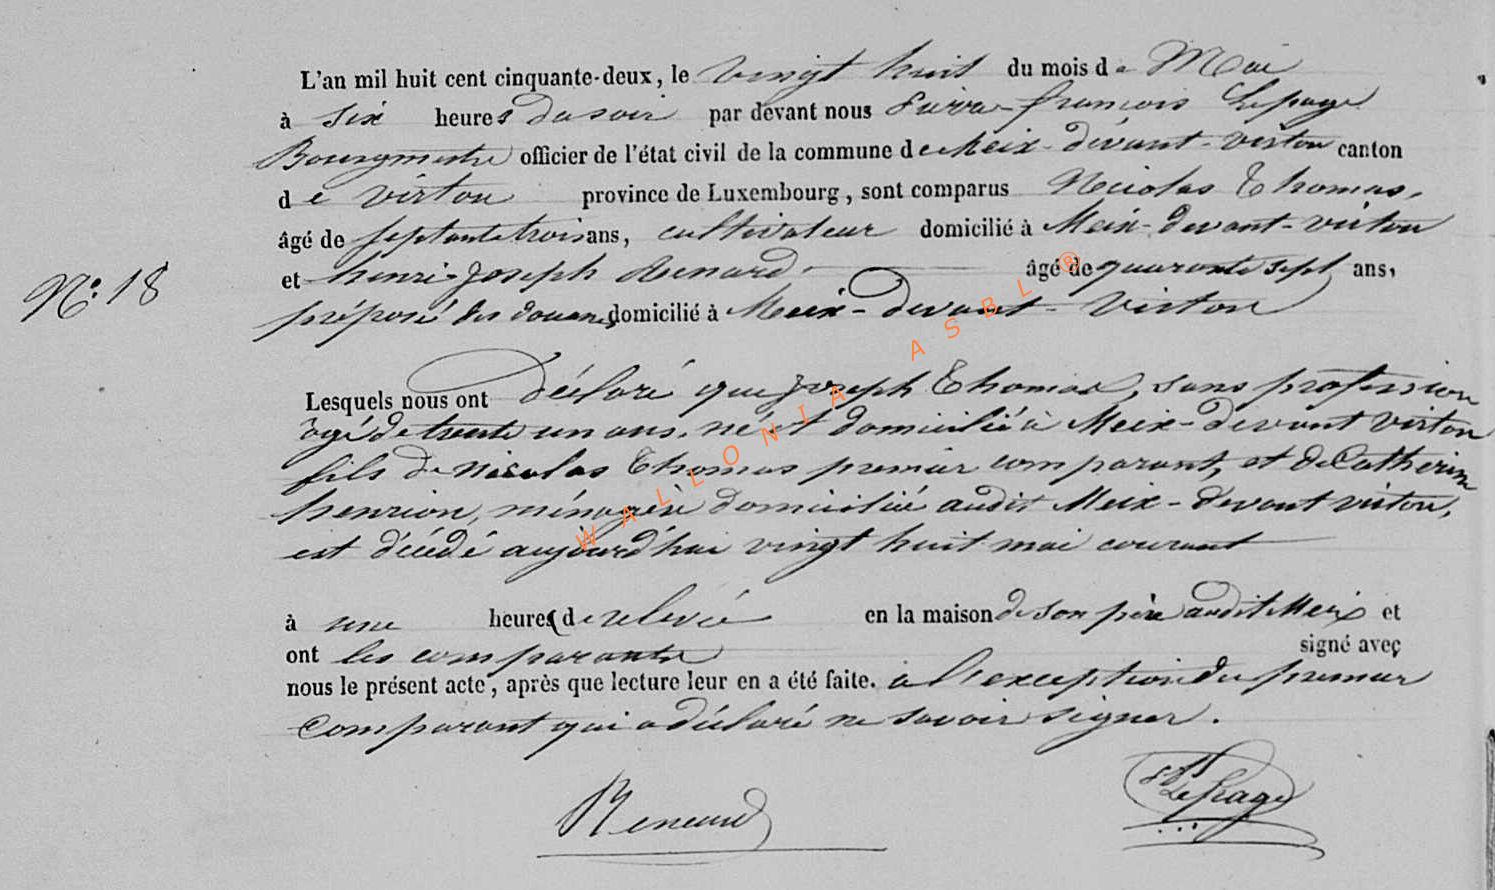 L'an mil huit cent cinquante-deux, le vingt huit du mois de Mai
à six heures du soir par devant nous Pierre-françois Lepage
Bourgmestre officier de l'état civil de la commune de Meix-dévant-virton canton
de virton province de Luxembourg, sont comparus Nicolas Thomas,
âgé de septante trois ans, cultivateur domicilié à Meix-devant-virton
et henri-Joseph Renard âgé de quarante sept ans,
N° 18
préposé des douanes domicilié à Meix-Devant-Virton
Lesquels nous ont déclaré que Joseph Thomas, sans profession
agé de trente un ans, né et domicilié à Meix-devant virton
fils de Nicolas Thomas premier comparant, et de Catherine
henrion, ménagère domiciliée audit Meix-devant virton,
est décédé aujourd'hui vingt huit mai courant
à une heures de relevée en la maison de son père audit Meix et
ont les comparants signé aveç
nous le présent acte, après que lecture leur en a été faite. à l'exception du premier
comparant qui a déclaré ne savoir signer.
Renard Lepage
WALLONIA ASBL ®